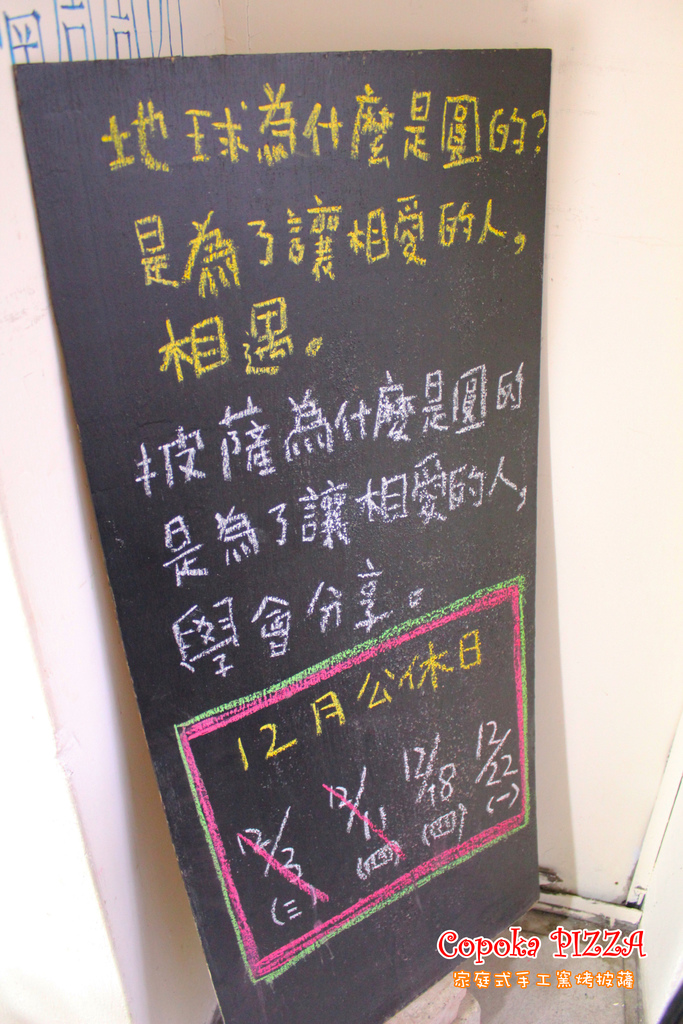 地球為什麼是圓的?
是為了讓相愛的人,
相遇。
披薩為什麼是圓的
是為了讓相愛的人,
學會分享。
12月公休日
12/3 12/11 12/18 12/22
(三) (四) (四) (一)
Copoka PIZZA
家庭式手工窯烤披薩